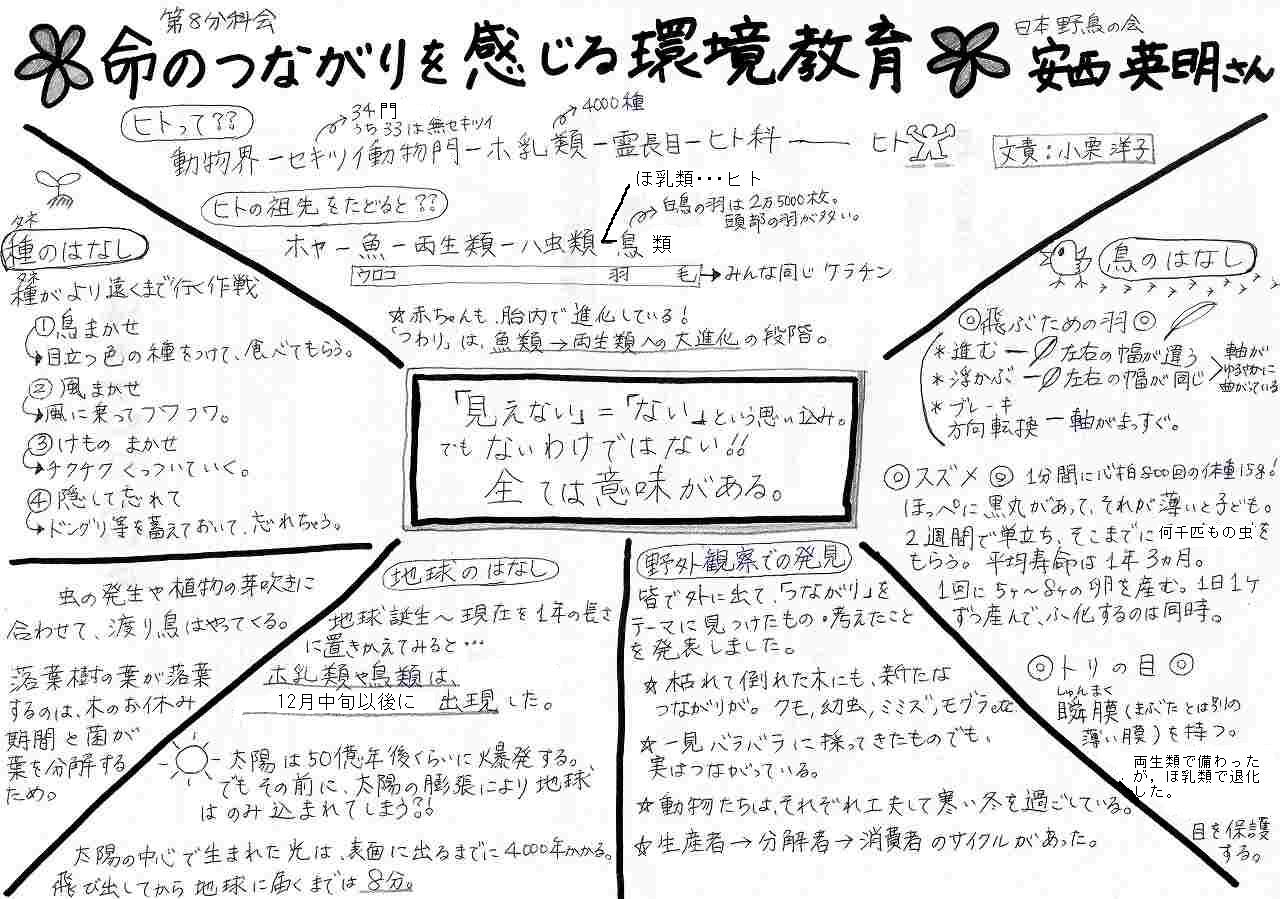 第8分科会
命のつながりを感じる環境教育
日本野鳥の会
安西英明さん
文責：小栗洋子
ヒトって??
34門
うち33は無セキツイ
4000種
動物界－セキツイ動物門－ホ乳類－霊長目－ヒト科――ヒト
ヒトの祖先をたどると??
ほ乳類･･･ヒト
白鳥の羽は2万5000枚。
頭部の羽が多い。
ホヤ－魚－両生類－ハ虫類－鳥類
ウロコ 羽 毛→みんな同じケラチン
☆赤ちゃんも、胎内で進化している!
「つわり」は、魚類→両生類への大進化の段階。
タネ
種のはなし
タネ
種がより遠くまで行く作戦
①鳥まかせ
→目立つ色の種をつけて、食べてもらう。
②風まかせ
→風に乗ってフワフワ。
③けものまかせ
→チクチクくっついていく。
④隠して忘れて
→ドングリ等を蓄えておいて、忘れちゃう。
「見えない」＝「ない」という思い込み。
でもないわけではない!!
全ては意味がある。
鳥のはなし
◎飛ぶための羽◎
*進む－左右の幅が違う
*浮かぶ－左右の幅が同じ
軸が
ゆるやかに
曲がっている
*ブレーキ
方向転換－軸がまっすぐ。
◎スズメ◎ 1分間に心拍800回の体重15g!
ほっぺに黒丸があって、それが薄いと子ども。
2週間で巣立ち、そこまでに何千匹もの虫を
もらう。平均寿命は1年3ヵ月。
1回に5ヶ～8ヶの卵を産む。1日1ヶ
ずつ産んで、ふ化するのは同時。
◎トリの目◎
しゅんまく
瞬膜(まぶたとは別の
薄い膜)を持つ。
両生類で備わった
が，ほ乳類で退化
した。
目を保護
する。
虫の発生や植物の芽吹きに
合わせて、渡り鳥はやってくる。
落葉樹の葉が落葉
するのは、木のお休み
期間と菌が
葉を分解する
ため。
地球のはなし
地球誕生～現在を1年の長さ
に置きかえてみると…
ホ乳類や鳥類は、
12月中旬以後に 出現した。
太陽は50億年後くらいに爆発する。
でもその前に、太陽の膨張により地球
はのみ込まれてしまう?!
太陽の中心で生まれた光は、表面に出るまでに4000年かかる。
飛び出してから地球に届くまでは8分。
野外観察での発見
皆で外に出て、「つながり」を
テーマに見つけたもの・考えたこと
を発表しました。
☆枯れて倒れた木にも、新たな
つながりが。クモ,幼虫,ミミズ,モグラetc.
☆一見バラバラに採ってきたものでも、
実はつながっている。
☆動物たちは、それぞれ工夫して寒い冬を過ごしている。
☆生産者→分解者→消費者のサイクルがあった。